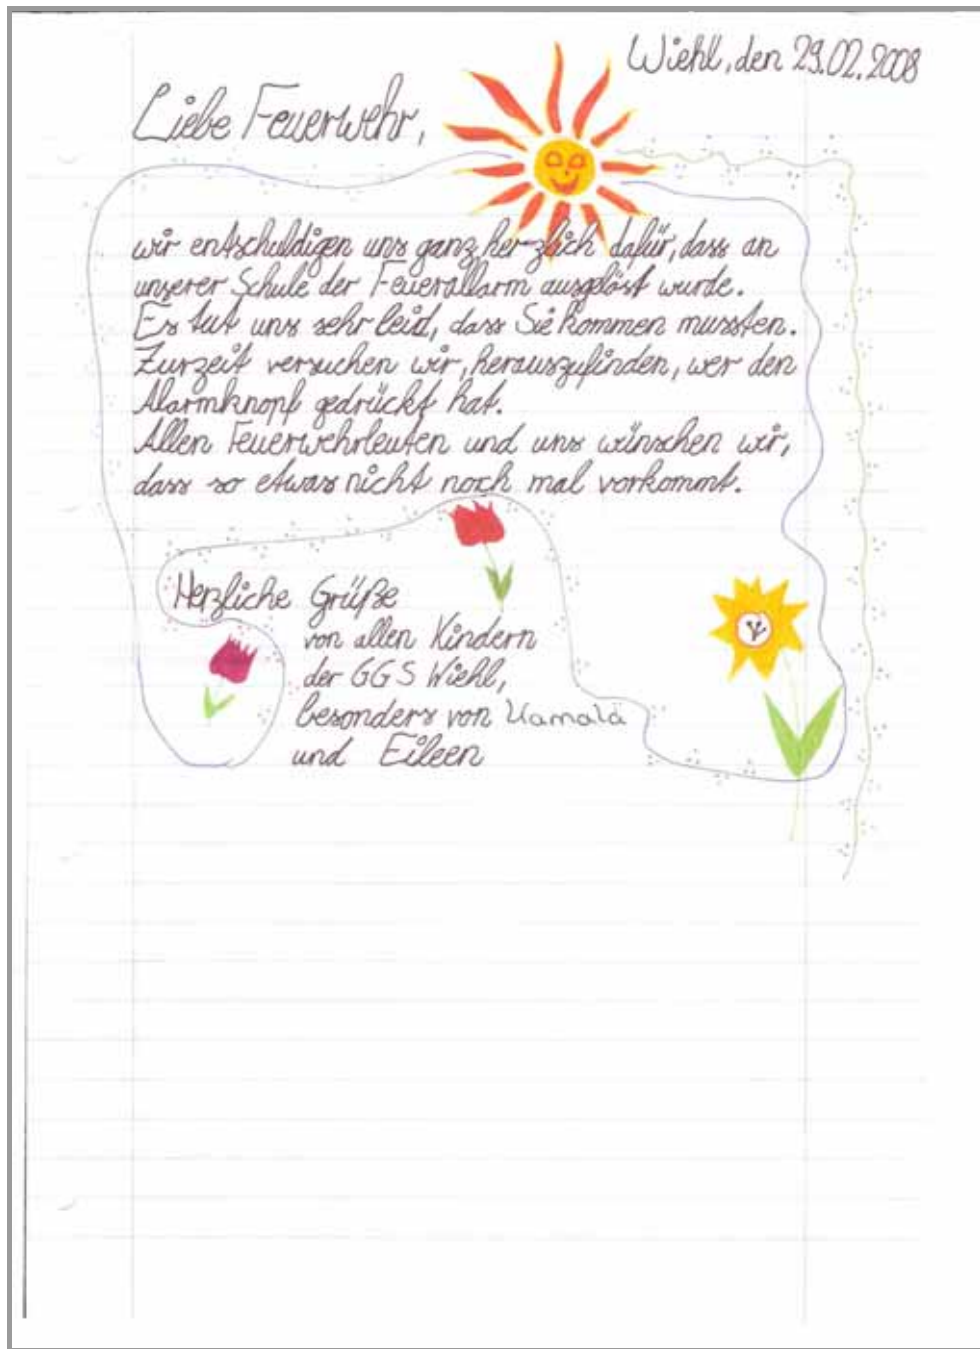 Wiehl, den 29.02.2008
Liebe Feuerwehr,
wir entschuldigen uns ganz herzlich dafür, dass an
unserer Schule der Feuerallarm ausgelöst wurde.
Es tut uns sehr leid, dass Sie kommen mussten.
Zurzeit versuchen wir, herauszufinden, wer den
Alarmknopf gedrückt hat.
Allen Feuerwehrleuten und uns wünschen wir,
dass so etwas nicht noch mal vorkommt.
Herzliche Grüße
von allen Kindern
der GGS Wiehl,
besonders von Kamala
und Eileen